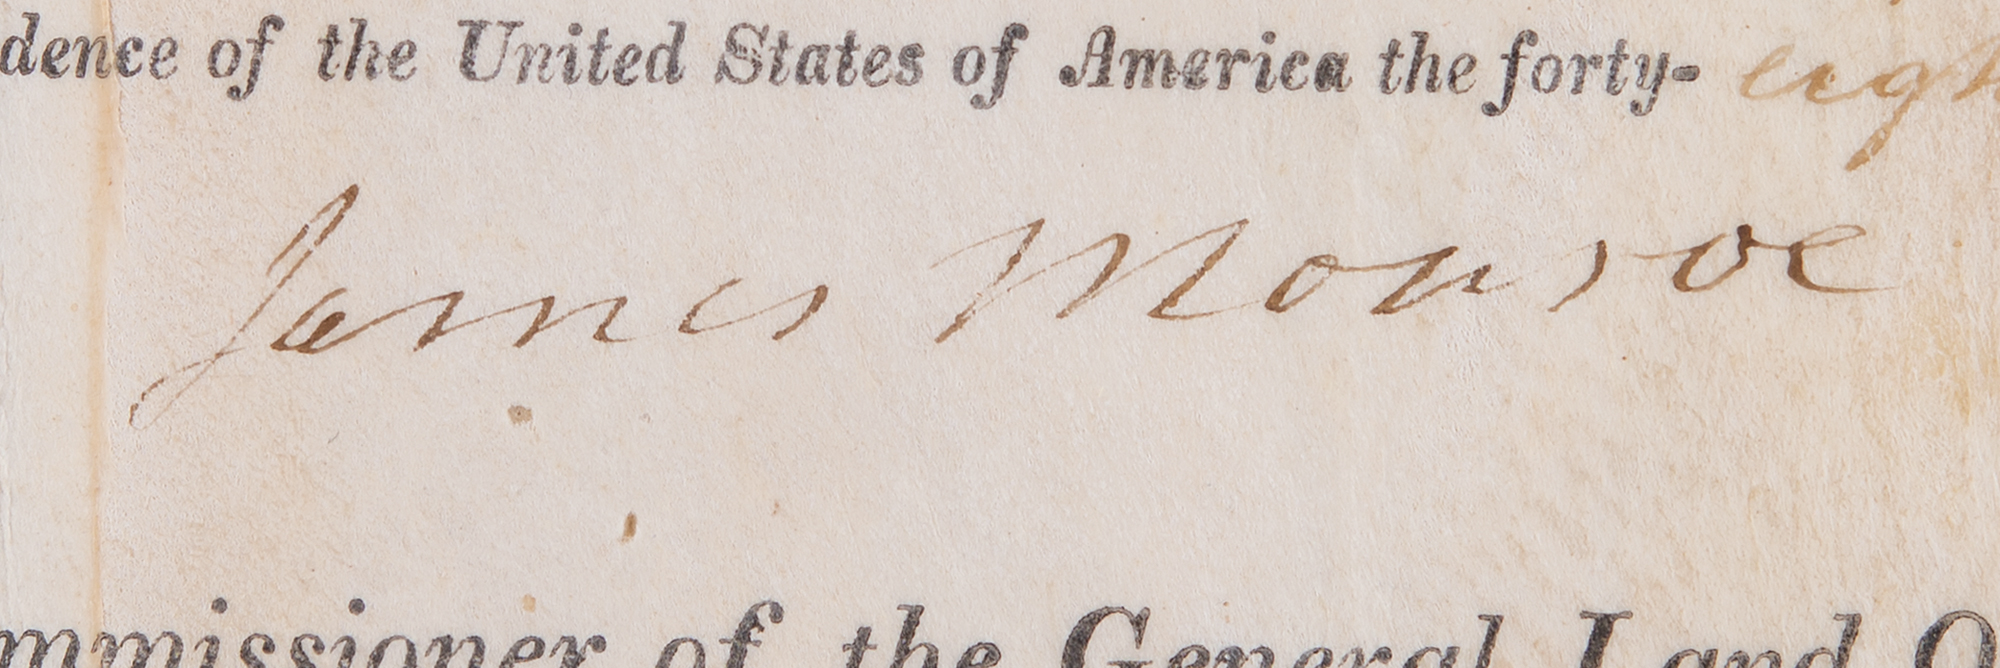 dence of the United States of America the forty- eigh
James Monroe
mmissioner of the General Land O